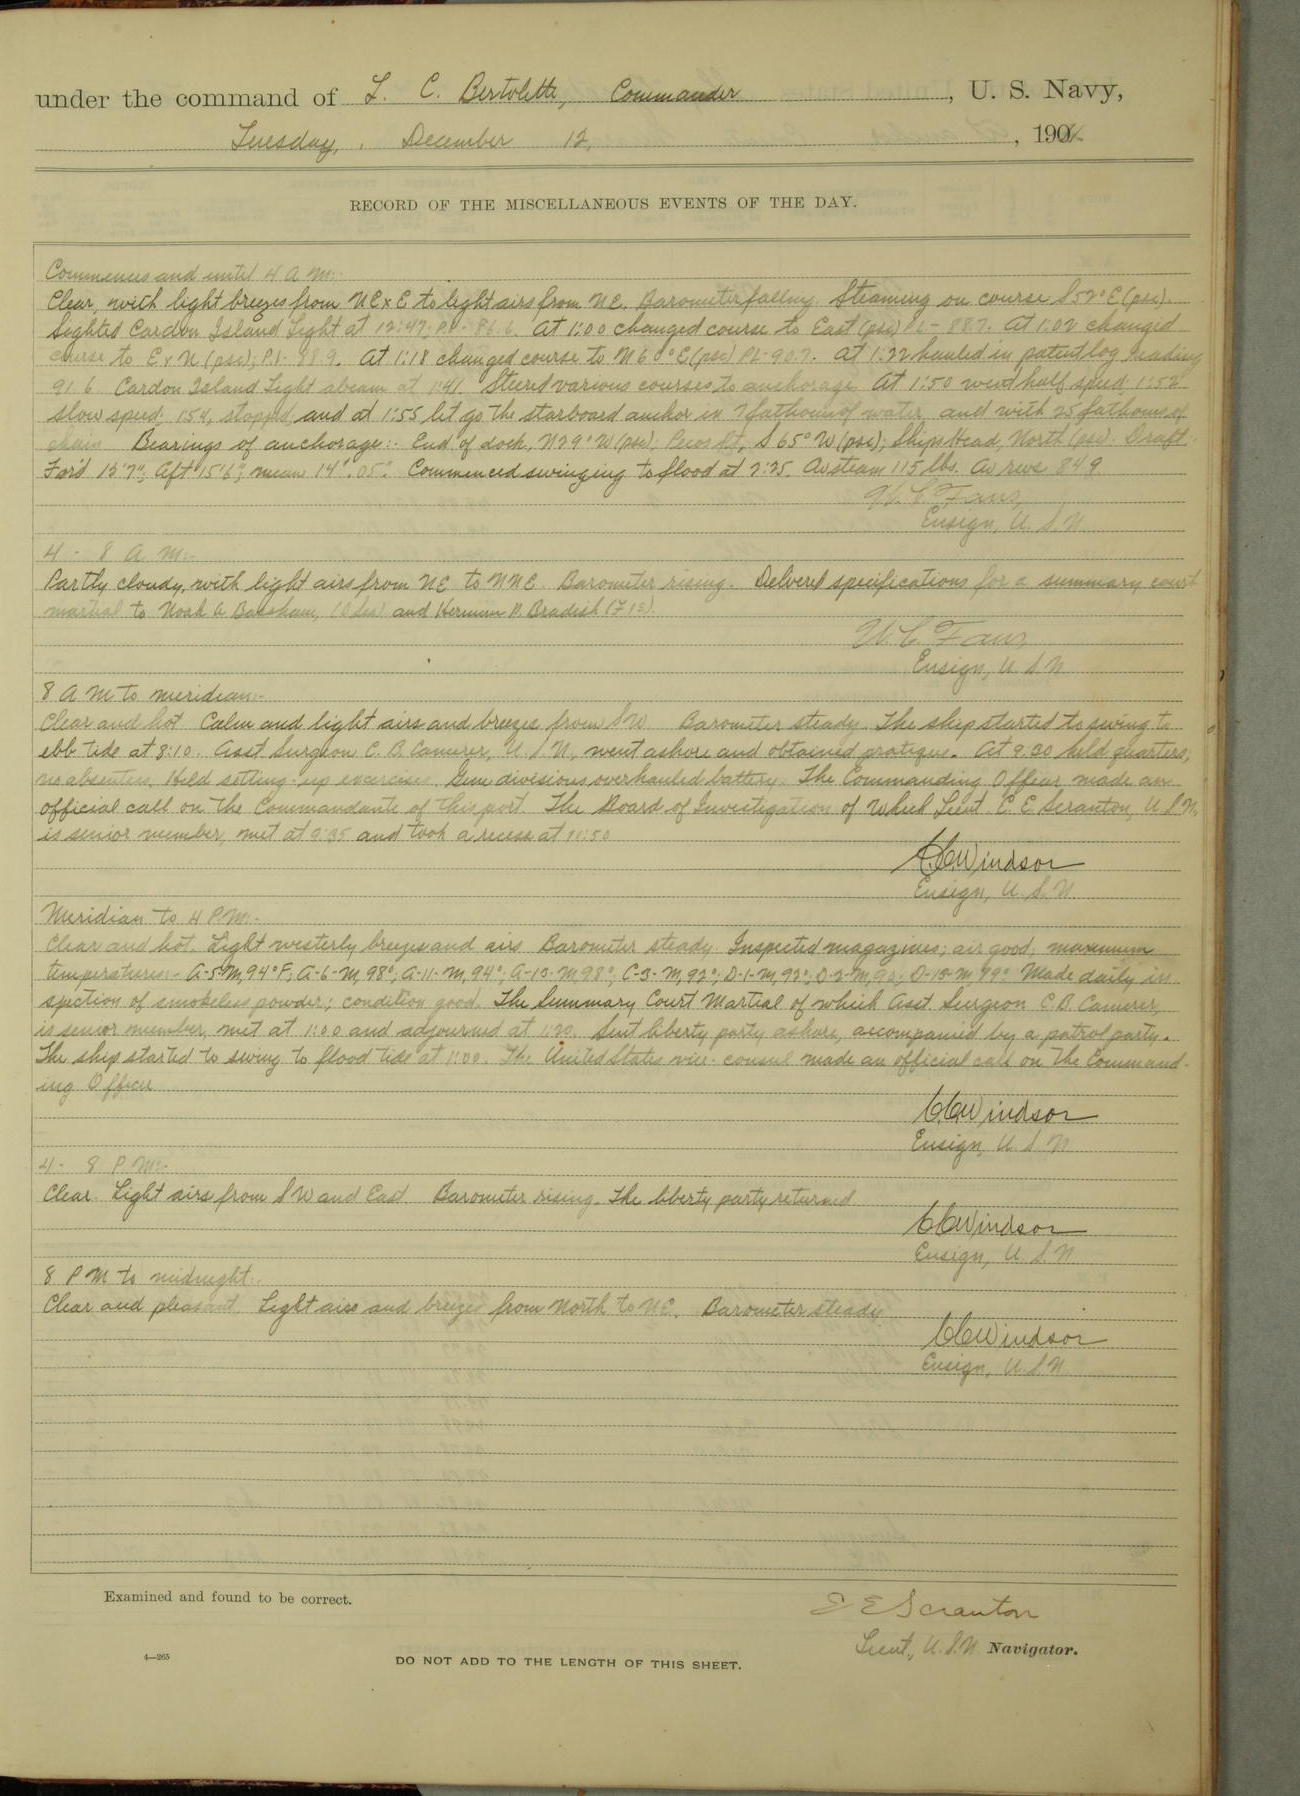 under the command of L. C. Bertolette, Commander, U. S. Navy,
Tuesday, December 12, 190
RECORD OF THE MISCELLANEOUS EVENTS OF THE DAY.
Commences and until 4 A.M:-
Clear, with light breezes from NExE to light airs from NE. Barometer falling. Steaming on course S52°E (psc).
Sighted Cardon Island Light at 12:47; P.L- 86.6. At 1:00 changed course to East (psc) P.L- 88.7. At 1:02 changed
course to ExN (psc); P.L- 88.9. At 1:18 changed course to N60°E (psc) P.L- 90.7. At 1:22 hauled in patent log reading
91.6 Cardon Island Light abeam at 1:41. Steered various courses to anchorage. At 1:50 went half speed 1:52
slow speed; 1:54, stopped, and at 1:55 let go the starboard anchor in 7 fathoms of water, and with 25 fathoms of
chain Bearings of anchorage:- End of dock, N29°W (psc), S 65°W (psc); Ship's Head, North (psc). Draft
For'd 12'7", Aft 15'6", mean 14'.05". Commenced swinging to flood at 2:25. Av steam 115 lbs. Av revs 84.9
Ensign, U. S. N
4 - 8 A.M:-
Partly cloudy, with light airs from NE to NNE. Barometer rising. Delivered specifications for a summary court
martial to Noah A Basham, (O Sea) and Herman P. Bradish (F 1c).
Ensign, U. S. N
8 A M to meridian:-
Clear and hot Calm and light airs and breezes from SW. Barometer steady. The ship started to swing to
ebb tide at 8:10. Asst Surgeon C. B. Camerer, U. S. N, went ashore and obtained pratique. At 9.30 held quarters;
no absentees. Held setting-up exercises. Gun divisions overhauled battery. The Commanding Officer made an
official call on the Commandante of this port. The Board of Investigation of which Lieut. C. E. Scranton, U.S.N,
is senior member, met at 9:35 and took a recess at 11:50
C.C. Windsor
Ensign, U. S. N
Meridian to 4 P.M:-
Clear and hot. Light westerly breezes and airs Barometer steady. Inspected magazines; air good; maximum
temperatures:- A-5-M, 94°F; A-6-M, 98°; A-11-M, 94°; A-13-M, 98°; C-3-M, 92°; D-1-M, 92°; D-2-M, 90; D-13-M, 99° Made daily in
spection of smokeless powder; condition good. The Summary Court Martial of which Asst Surgeon C. B. Camerer,
is senior member, met at 1:00 and adjourned at 1:20. Sent liberty party ashore, accompanied by a patrol party.
The ship started to swing to flood tide at 1:00. The United States vice-consul made an official call on the Command-
ing Officer
C.C. Windsor
Ensign, U. S. N
4 - 8 P. M:-
Clear. Light airs from SW and East. Barometer rising. The liberty party returned
C.C. Windsor
Ensign, U. S. N
8 P M to midnight:-
Clear and pleasant Light airs and breezes from North to NE. Barometer steady
C.C. Windsor
Ensign, U. S. N
Examined and found to be correct.
C E Scranton
Lieut., U. S. N. Navigator.
4—265
DO NOT ADD TO THE LENGTH OF THIS SHEET.